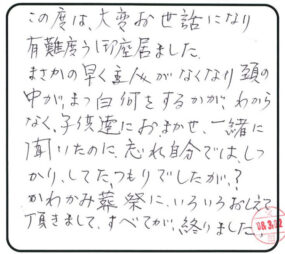 この度は、大変お世話になり
有難度うし御座居ました。
まさかの早く主人がなくなり頭の
中が、まっ白何をするかが、わから
なく、子供達におまかせ、一緒に
聞いたのに、忘れ自分では、しっ
かり、してたつもりでしたが、?
かわかみ葬祭に、いろいろおしえて
頂きまして、すべてが、終りました